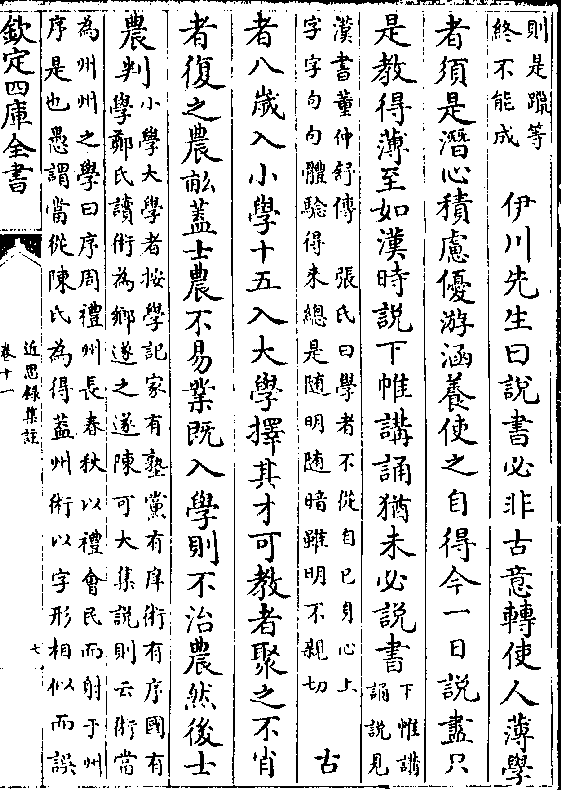 則是躐等
終不能成
伊川先生曰說書必非古意轉使人薄學
者須是潛心積慮優游涵養使之自得今一日說盡只
是教得薄至如漢時說下帷講誦猶未必說書
下帷講
誦說見
漢書董仲舒傳 張氏曰學者不從自已身心上
字字句句體驗得來總是随明随暗雖明不親切
古
者八歲入小學十五入大學擇其才可教者聚之不肖
者復之農畝蓋士農不易業既入學則不治農然後士
農判
小學大學者按學記家有塾黨有庠術有序國有
學鄭氏讀術為鄉遂之遂陳可大集說則云術當
為州州之學曰序周禮州長春秋以禮會民而射于州
序是也愚謂當從陳氏為得蓋州術以字形相似而誤
欽定四庫全書
近思錄集註
卷十一
七